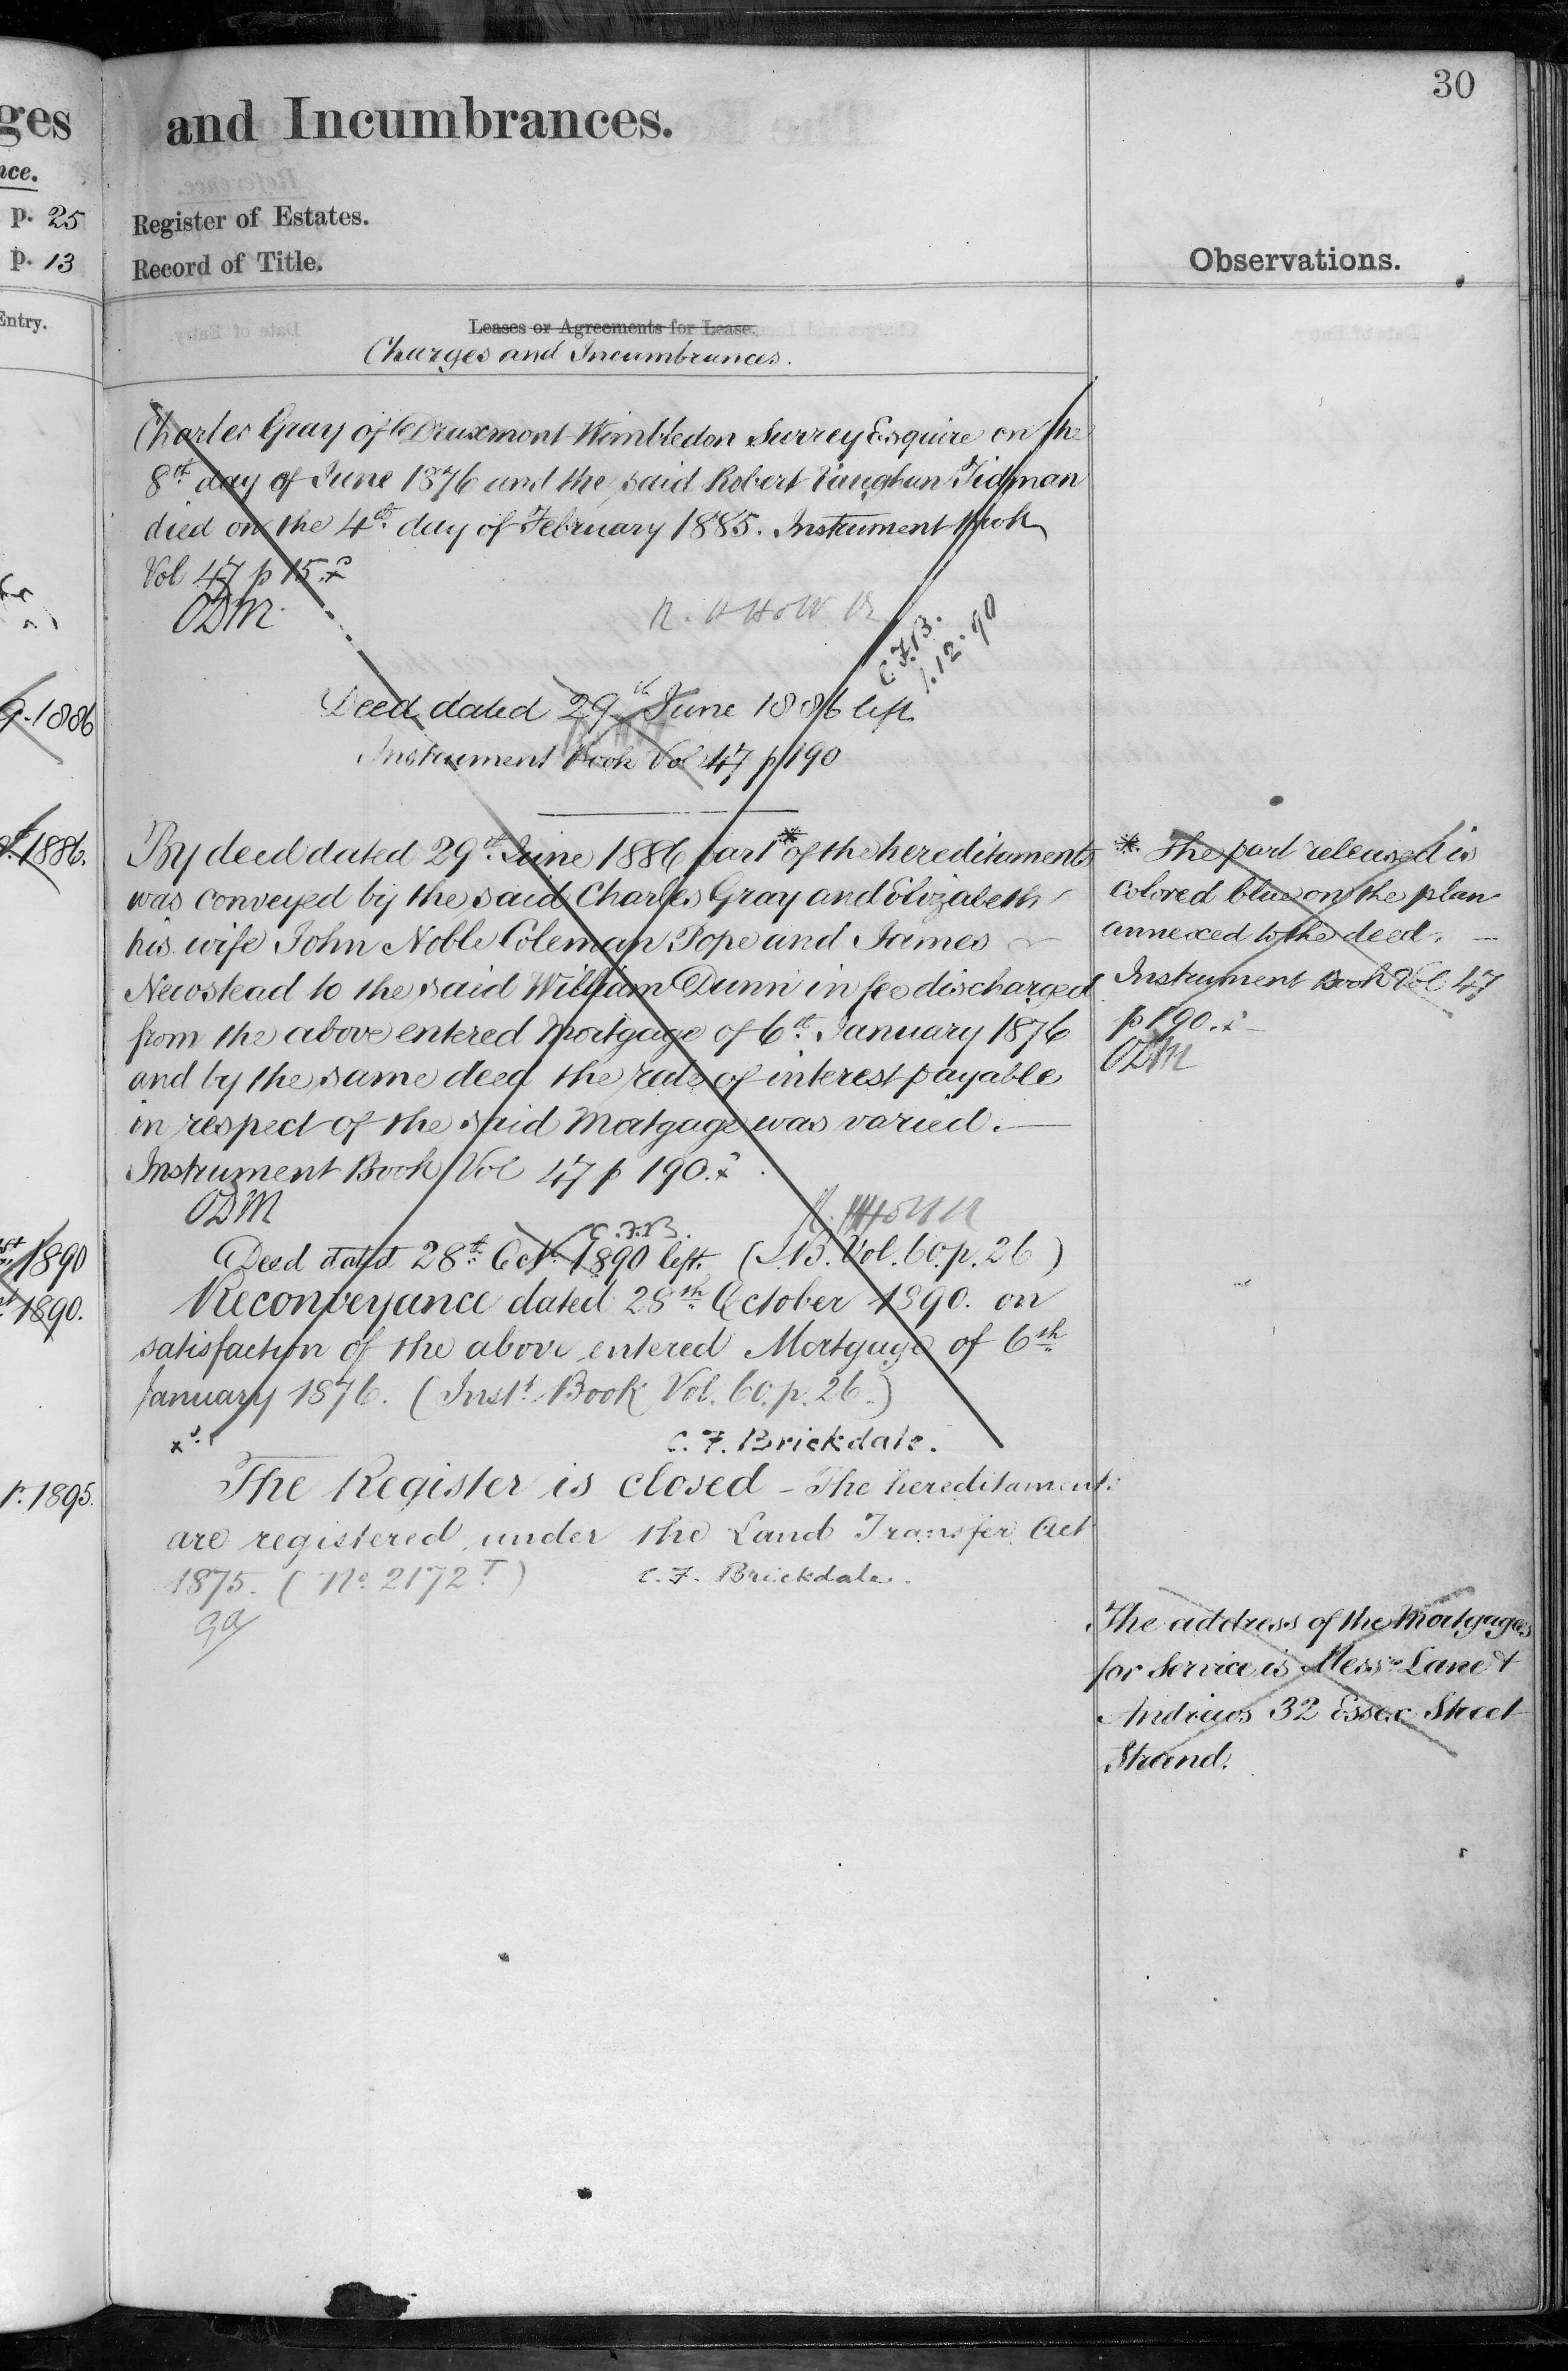 30
ges
and Incumbrances.
nce.
p. 25
Register of Estates.
p. 13
Record of Title.
Observations.
Entry.
Leases or Agreements for Lease.
Charges and Incumbrances.
Charles Gray of Wimbledon Surrey Esquire on the
8th day of June 1876 and the said Robert Vaughan Tidman
died on the 4th day of February 1885. Instrument Book
Vol 47 p 15.
ODM.
C.F.B.
1.12.90
1886
Deed dated 29th June 1886 left
Instrument Book Vol 47 p 190
1886.
By deed dated 29th June 1886 part * of the hereditaments
was conveyed by the said Charles Gray and Elizabeth
his wife John Noble Coleman Pope and James
Newstead to the said William Dunn in fee discharged
from the above entered Mortgage of 6th January 1876
and by the same deed the rate of interest payable
in respect of the said Mortgage was varied.
Instrument Book Vol 47 p 190.
ODM
* The part released is
colored blue on the plan
annexed to the deed.
Instrument Book Vol 47
p 190.
ODM
1890
C.F.B.
Deed dated 28th Oct. 1890 left. (I.B. Vol. 60. p. 26)
1890.
Reconveyance dated 28th October 1890. on
satisfaction of the above entered Mortgage of 6th
January 1876. (Instt Book Vol. 60. p. 26.)
C. F. Brickdale.
1895.
The Register is closed - The hereditaments
are registered under the Land Transfer Act
1875. (No. 2172 T)
C. F. Brickdale.
The address of the Mortgagees
for Service is Messrs Lane &
Andrews 32 Essex Street
Strand.